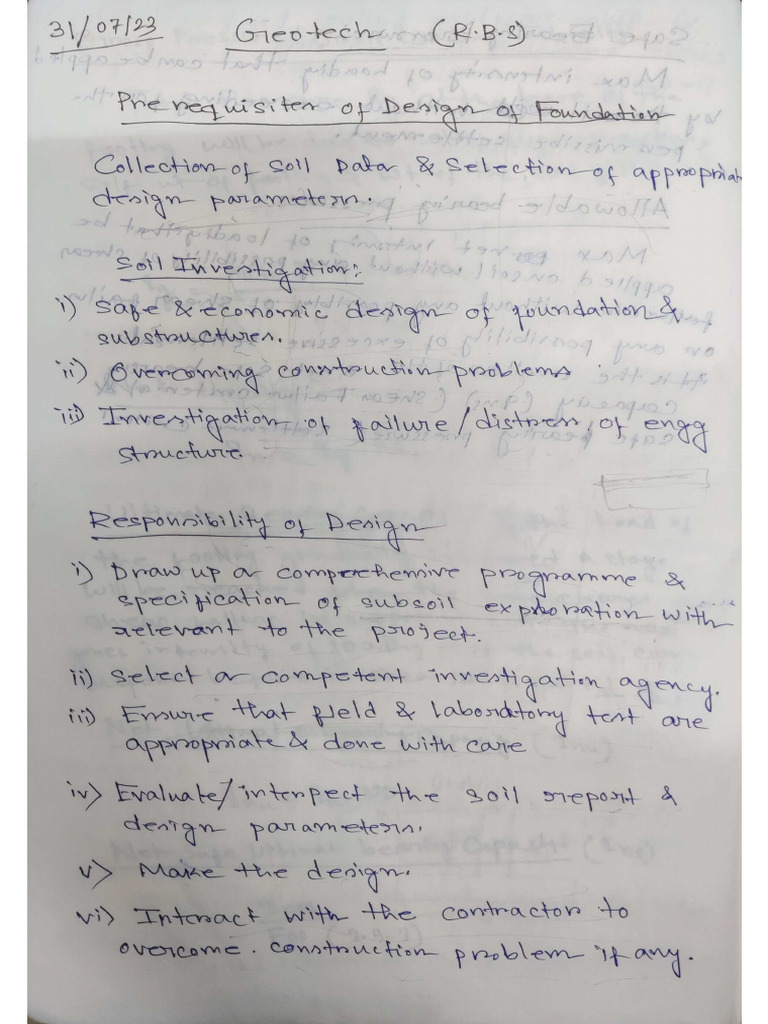 31/07/23 Geotech (R.B.S)
Prerequisites of Design of Foundation
Collection of soil Data & Selection of appropriate
design parameters.
Soil Investigation:
i) Safe & economic design of foundation &
substructures.
ii) Overcoming construction problems
iii) Investigation of failure/distress of engg
structure.
Responsibility of Design
i) Draw up a comprehensive programme &
specification of subsoil exploration with
relevant to the project.
ii) Select a competent investigation agency.
iii) Ensure that field & laboratory test are
appropriate & done with care
iv) Evaluate/interpect the soil report &
design parameters.
v) Make the design.
vi) Interact with the contractor to
overcome. construction problem if any.